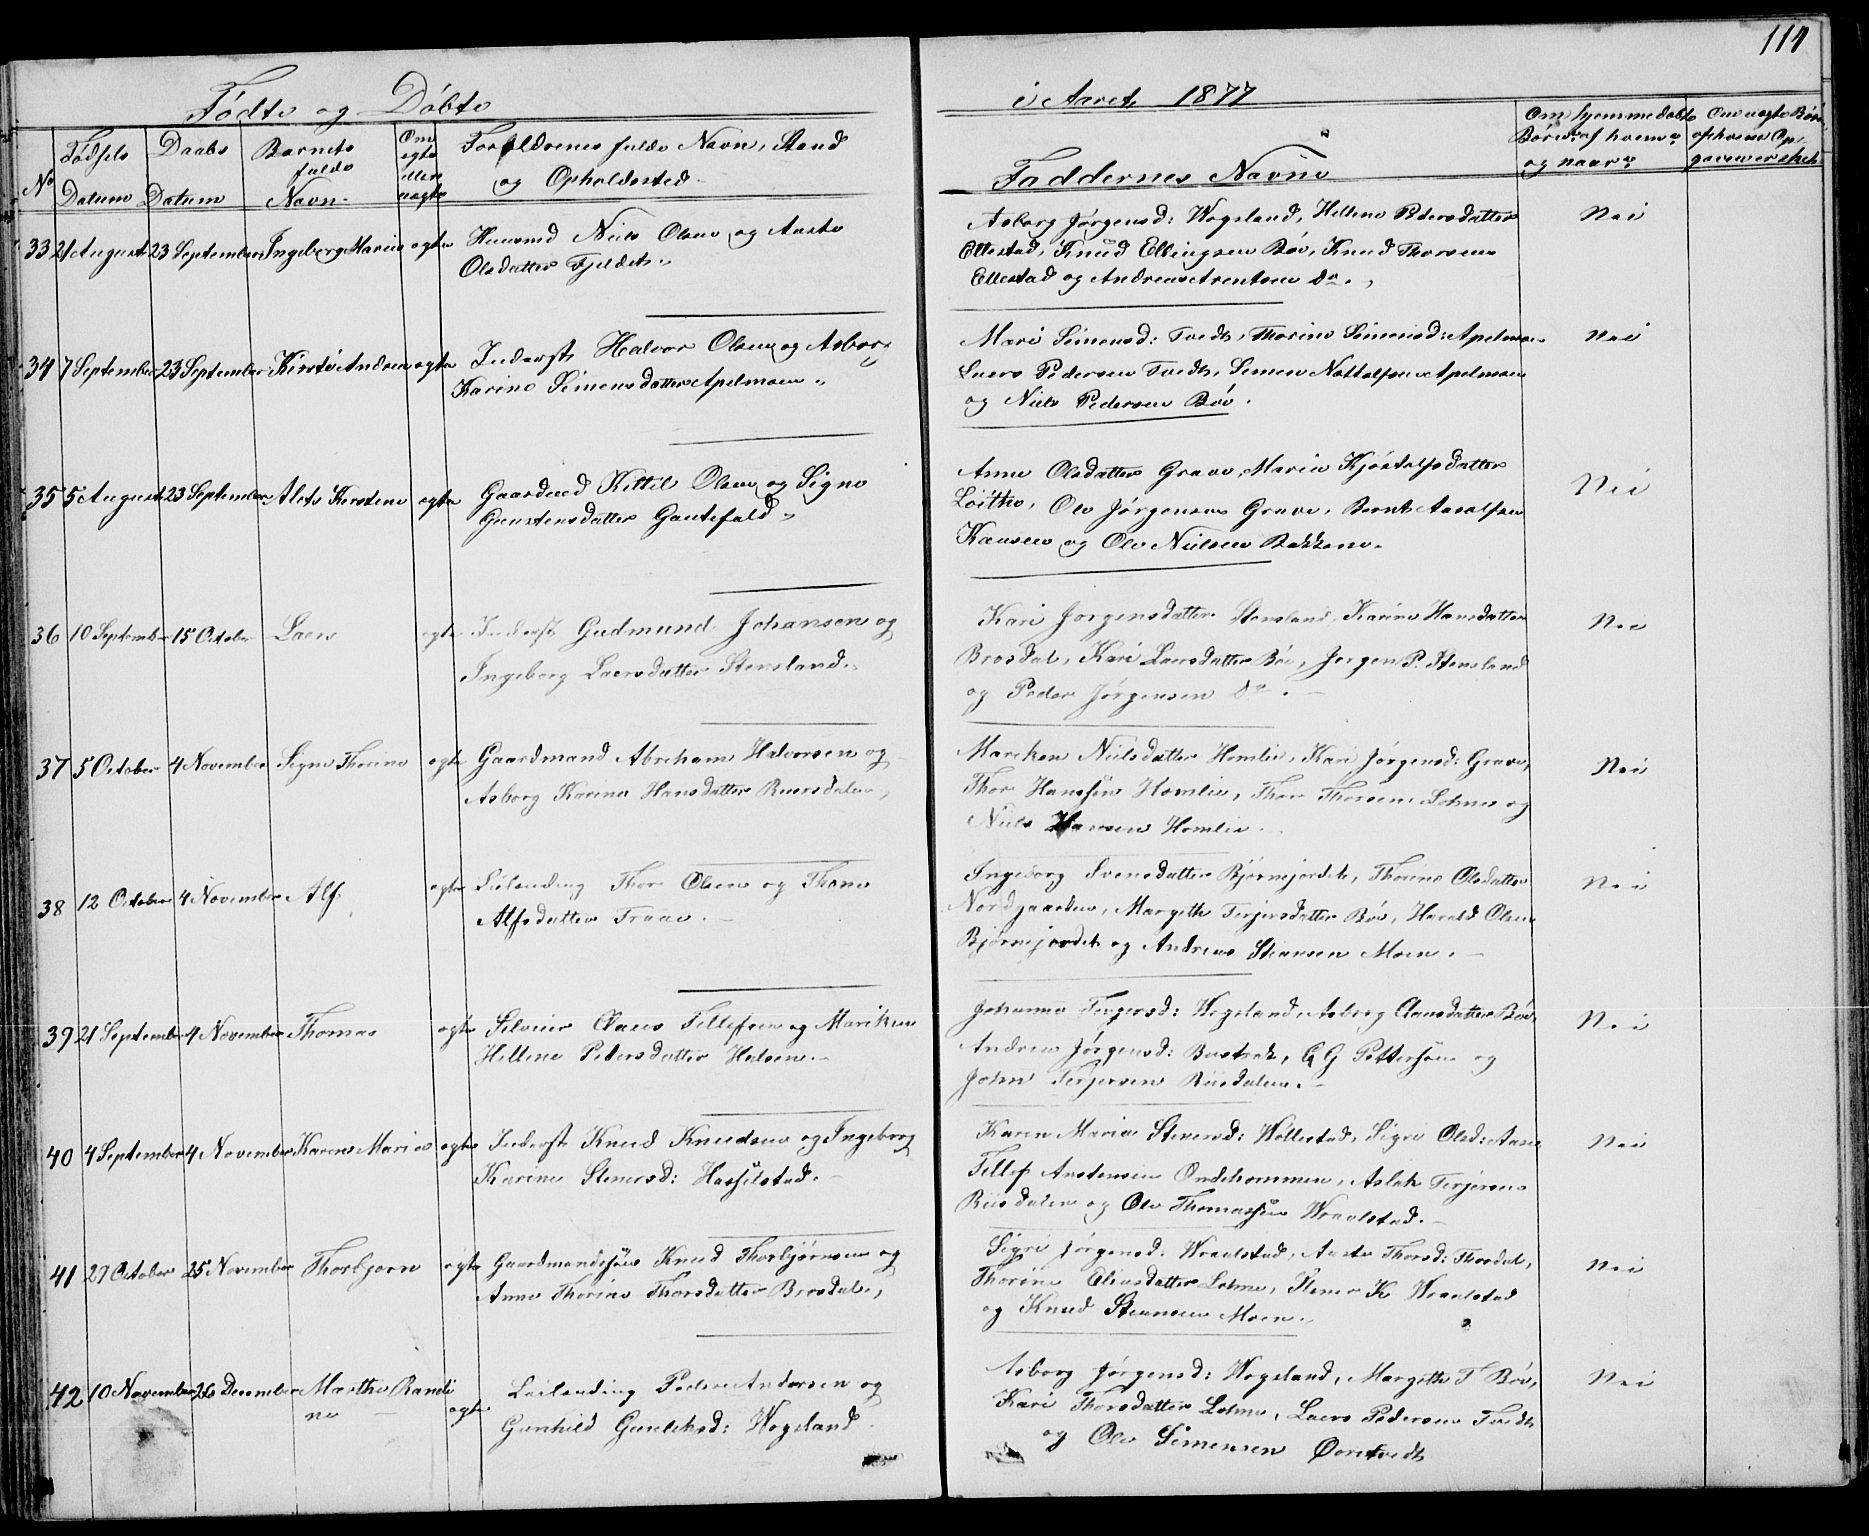 114
Fødte og Døbte
i Aaret 1877
No
Fødsels Datum
Daabs Datum
Barnets fulde Navn.
Om ægte eller uægte
Forældrenes fulde Navn, Stand
og Opholdssted.
Faddernes Navne
Om hjemmedøbte
Børn, af hvem
og naar
Om uægte Børn
33 21 August 23 September Ingeborg Marie ægte Huusmd Niels Olsen og Aaste
Olsdatter Fjeldet.
Asborg Jørgensd: Wogsland, Hellene Pedersdatter
Ellestad, Knud Ellingsen Bøe, Knud Thorsen
Ellestad og Andreas Arentsen Do.
Nei
34 7 September 23 September Kirsti Andrea ægte Inderst Halvor Olsen og Asborg
Karine Simensdatter Apelmoen
Mari Simensd: Tvedt, Thorine Simensd: Apelmoen
Laers Pedersen Tvedt, Simen Nottolfsen Apelmoen
og Niels Pedersen Bøe.
Nei
35 5 August 23 September Alets Kirstine ægte Gaardmd Kittil Olsen og Signe
Gunstensdatter Gautefald
Anne Olsdatter Grave, Marie Kjøstolfsdatter
Løite, Ole Jørgensen Grave, Bernt Aasolfsen
Kausen og Ole Nielsen Bakkene.
Nei
36 10 September 15 October Laers ægte Inderst Gudmund Johansen og
Ingeborg Laersdatter Stensland.
Kari Jørgensdatter Stensland, Karine Hansdatter
Brosdal, Kari Laersdatter Bøe, Jørgen P. Stensland
og Peder Jørgensen Do.
Nei
37 5 October 4 November Signe Thorine ægte Gaardmand Abraham Halvorsen og
Asborg Karine Hansdatter Ruersdalen,
Mareken Nielsdatter Homlie, Kari Jørgensd: Grave,
Thor Hanssen Homlie, Thor Thorsen Lohne og
Niels Hansen Homlie.
Nei
38 12 October 4 November Alf ægte Leilending Thor Olsen og Thone
Alfsdatter Traae.
Ingeborg Svensdatter Bjørnejordet, Thorine Olsdatter
Nordgaarden, Margith Terjersdatter Bøe, Harald Olsen
Bjørnejordet og Andreas Steansen Moen.
Nei
39 21 September 4 November Thomas ægte Selveier Claus Tellefsen og Mariken
Hellene Pedersdatter Halsen.
Johanne Tergersd: Wogsland, Asborg Clausdatter Bøe
Andrea Jørgensd: Bustrak, G G Pettersen og
John Terjersen Riisdalen.
Nei
40 4 September 4 November Karen Marie ægte Inderst Knud Knudsen og Ingeborg
Karine Stenersd: Hasselstad.
Karen Marie Stenersd: Wøllestad, Sigri Olsd: Aase
Tellef Austensen Ondehommen, Aslak Terjersen
Riisdalen og Ole Thomassen Wraalstad.
Nei
41 27 October 25 November Thorbjørn ægte Gaardmandssøn Knud Thorbjørnsen og
Anne Thorine Thorsdatter Brosdal,
Sigri Jørgensd: Wraalstad, Aaste Thorsd: Thordal,
Thorine Eliasdatter Lohne, Stener K Wraalstad
og Knud Steansen Moen.
Nei
42 10 November 26 December Marthe Randi
ne
ægte Leilending Peder Andersen og
Gunhild Gunleksd: Wogsland
Asborg Jørgensd: Wogsland, Margith T Bøe,
Kari Thorsdatter Lohne, Laers Pedersen Tvedt
og Ole Simensen Ørnetvedt
Nei